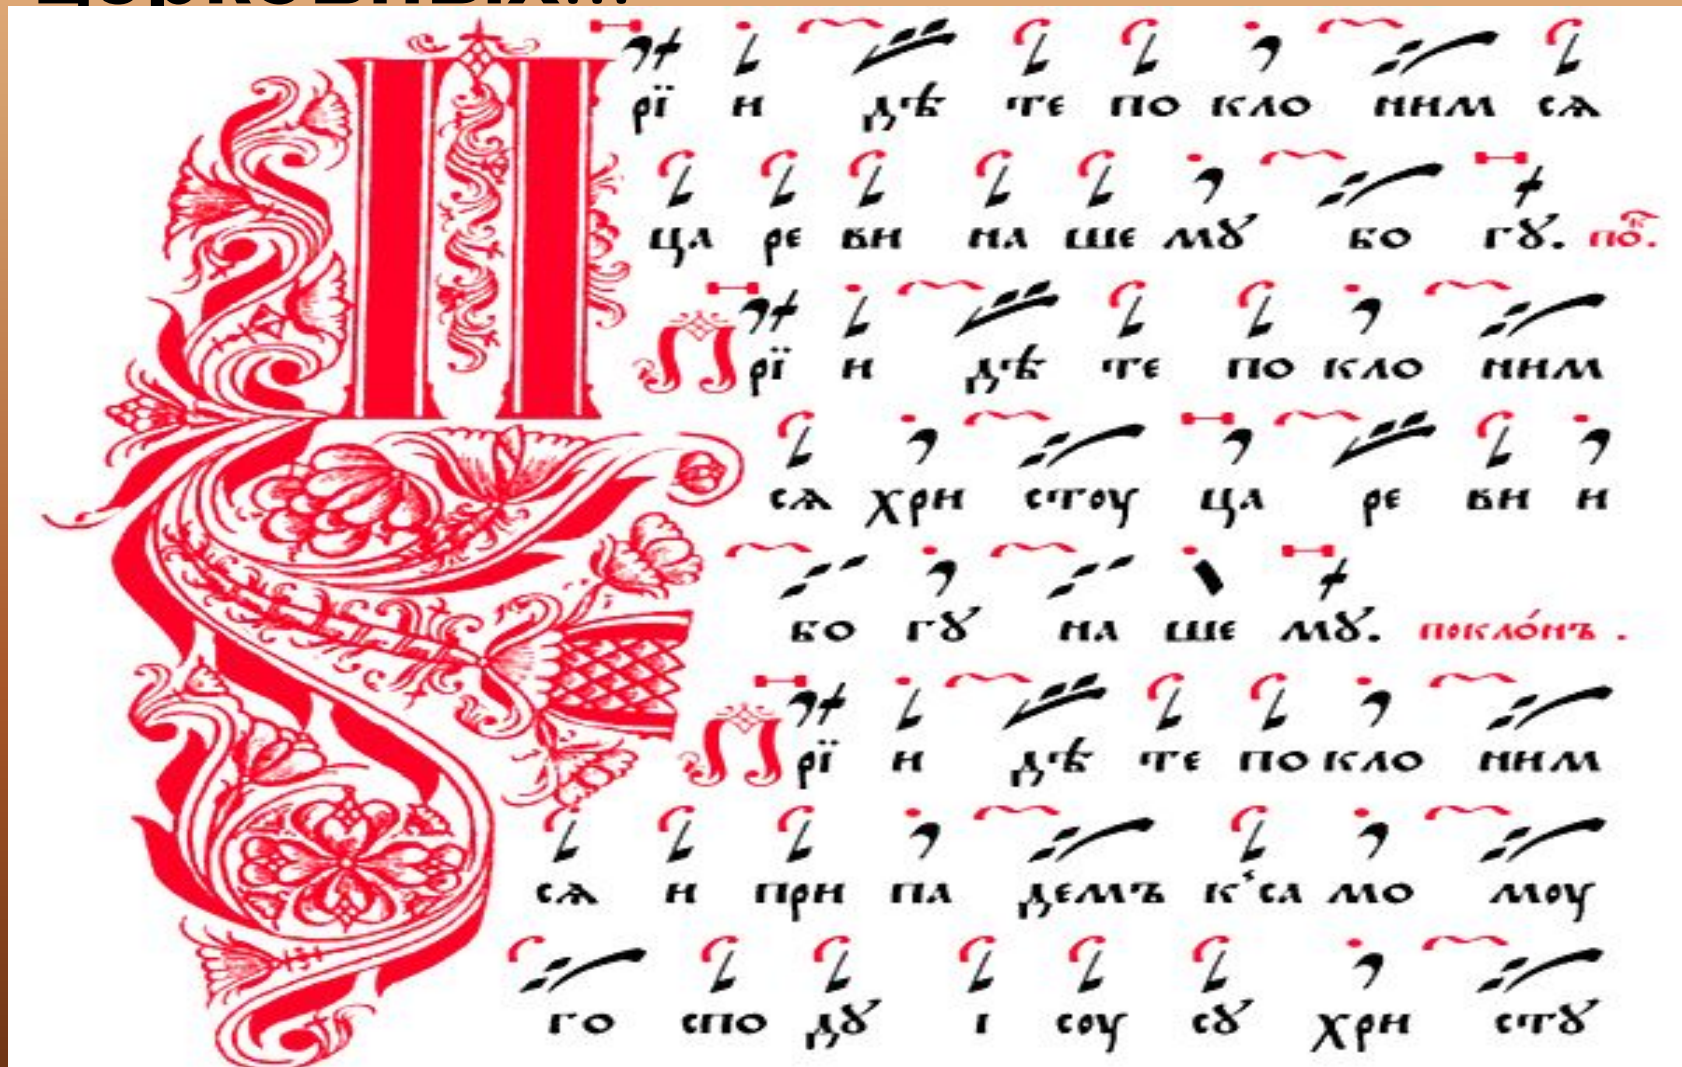 церковных...
П рї и дѣ те по кло ним сѧ
ца ре ви на ше мꙋ бо гꙋ. по́к.
П рї и дѣ те по кло ним
сѧ хри стоу ца ре ви и
бо гꙋ на ше мꙋ. покло́нъ .
П рї и дѣ те по кло ним
сѧ и при па демъ к' са мо моу
го спо дꙋ і соу сꙋ хри стꙋ